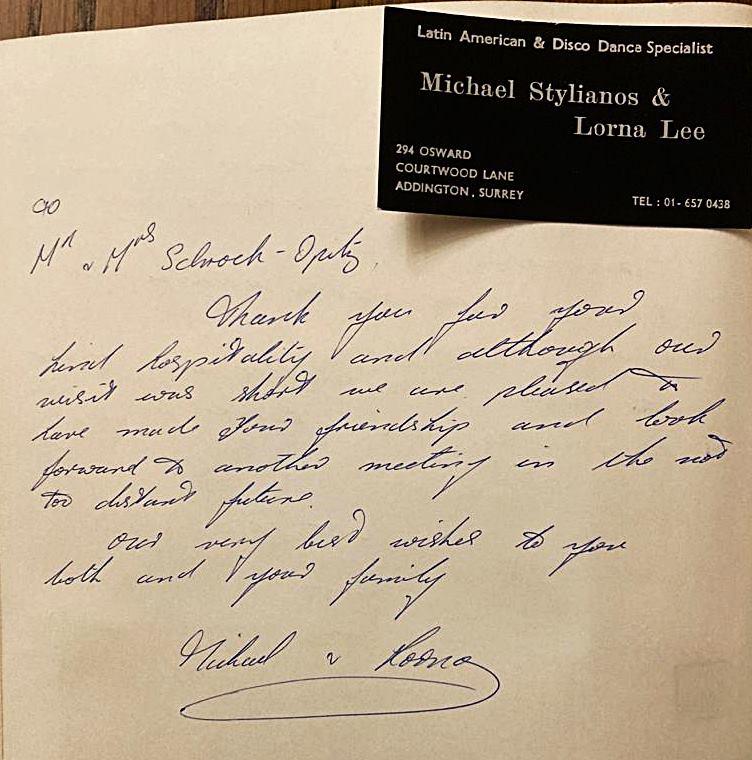 Latin American & Disco Dance Specialist
Michael Stylianos &
Lorna Lee
294 OSWARD
COURTWOOD LANE
ADDINGTON, SURREY
TEL : 01- 657 0438
Mr & Mrs Schrock-Opitz,
Thank you for your
kind hospitality and although our
visit was short we are pleased to
have made your friendship and look
forward to another meeting in the not
too distant future.
Our very best wishes to you
both and your family
Michael & Lorna